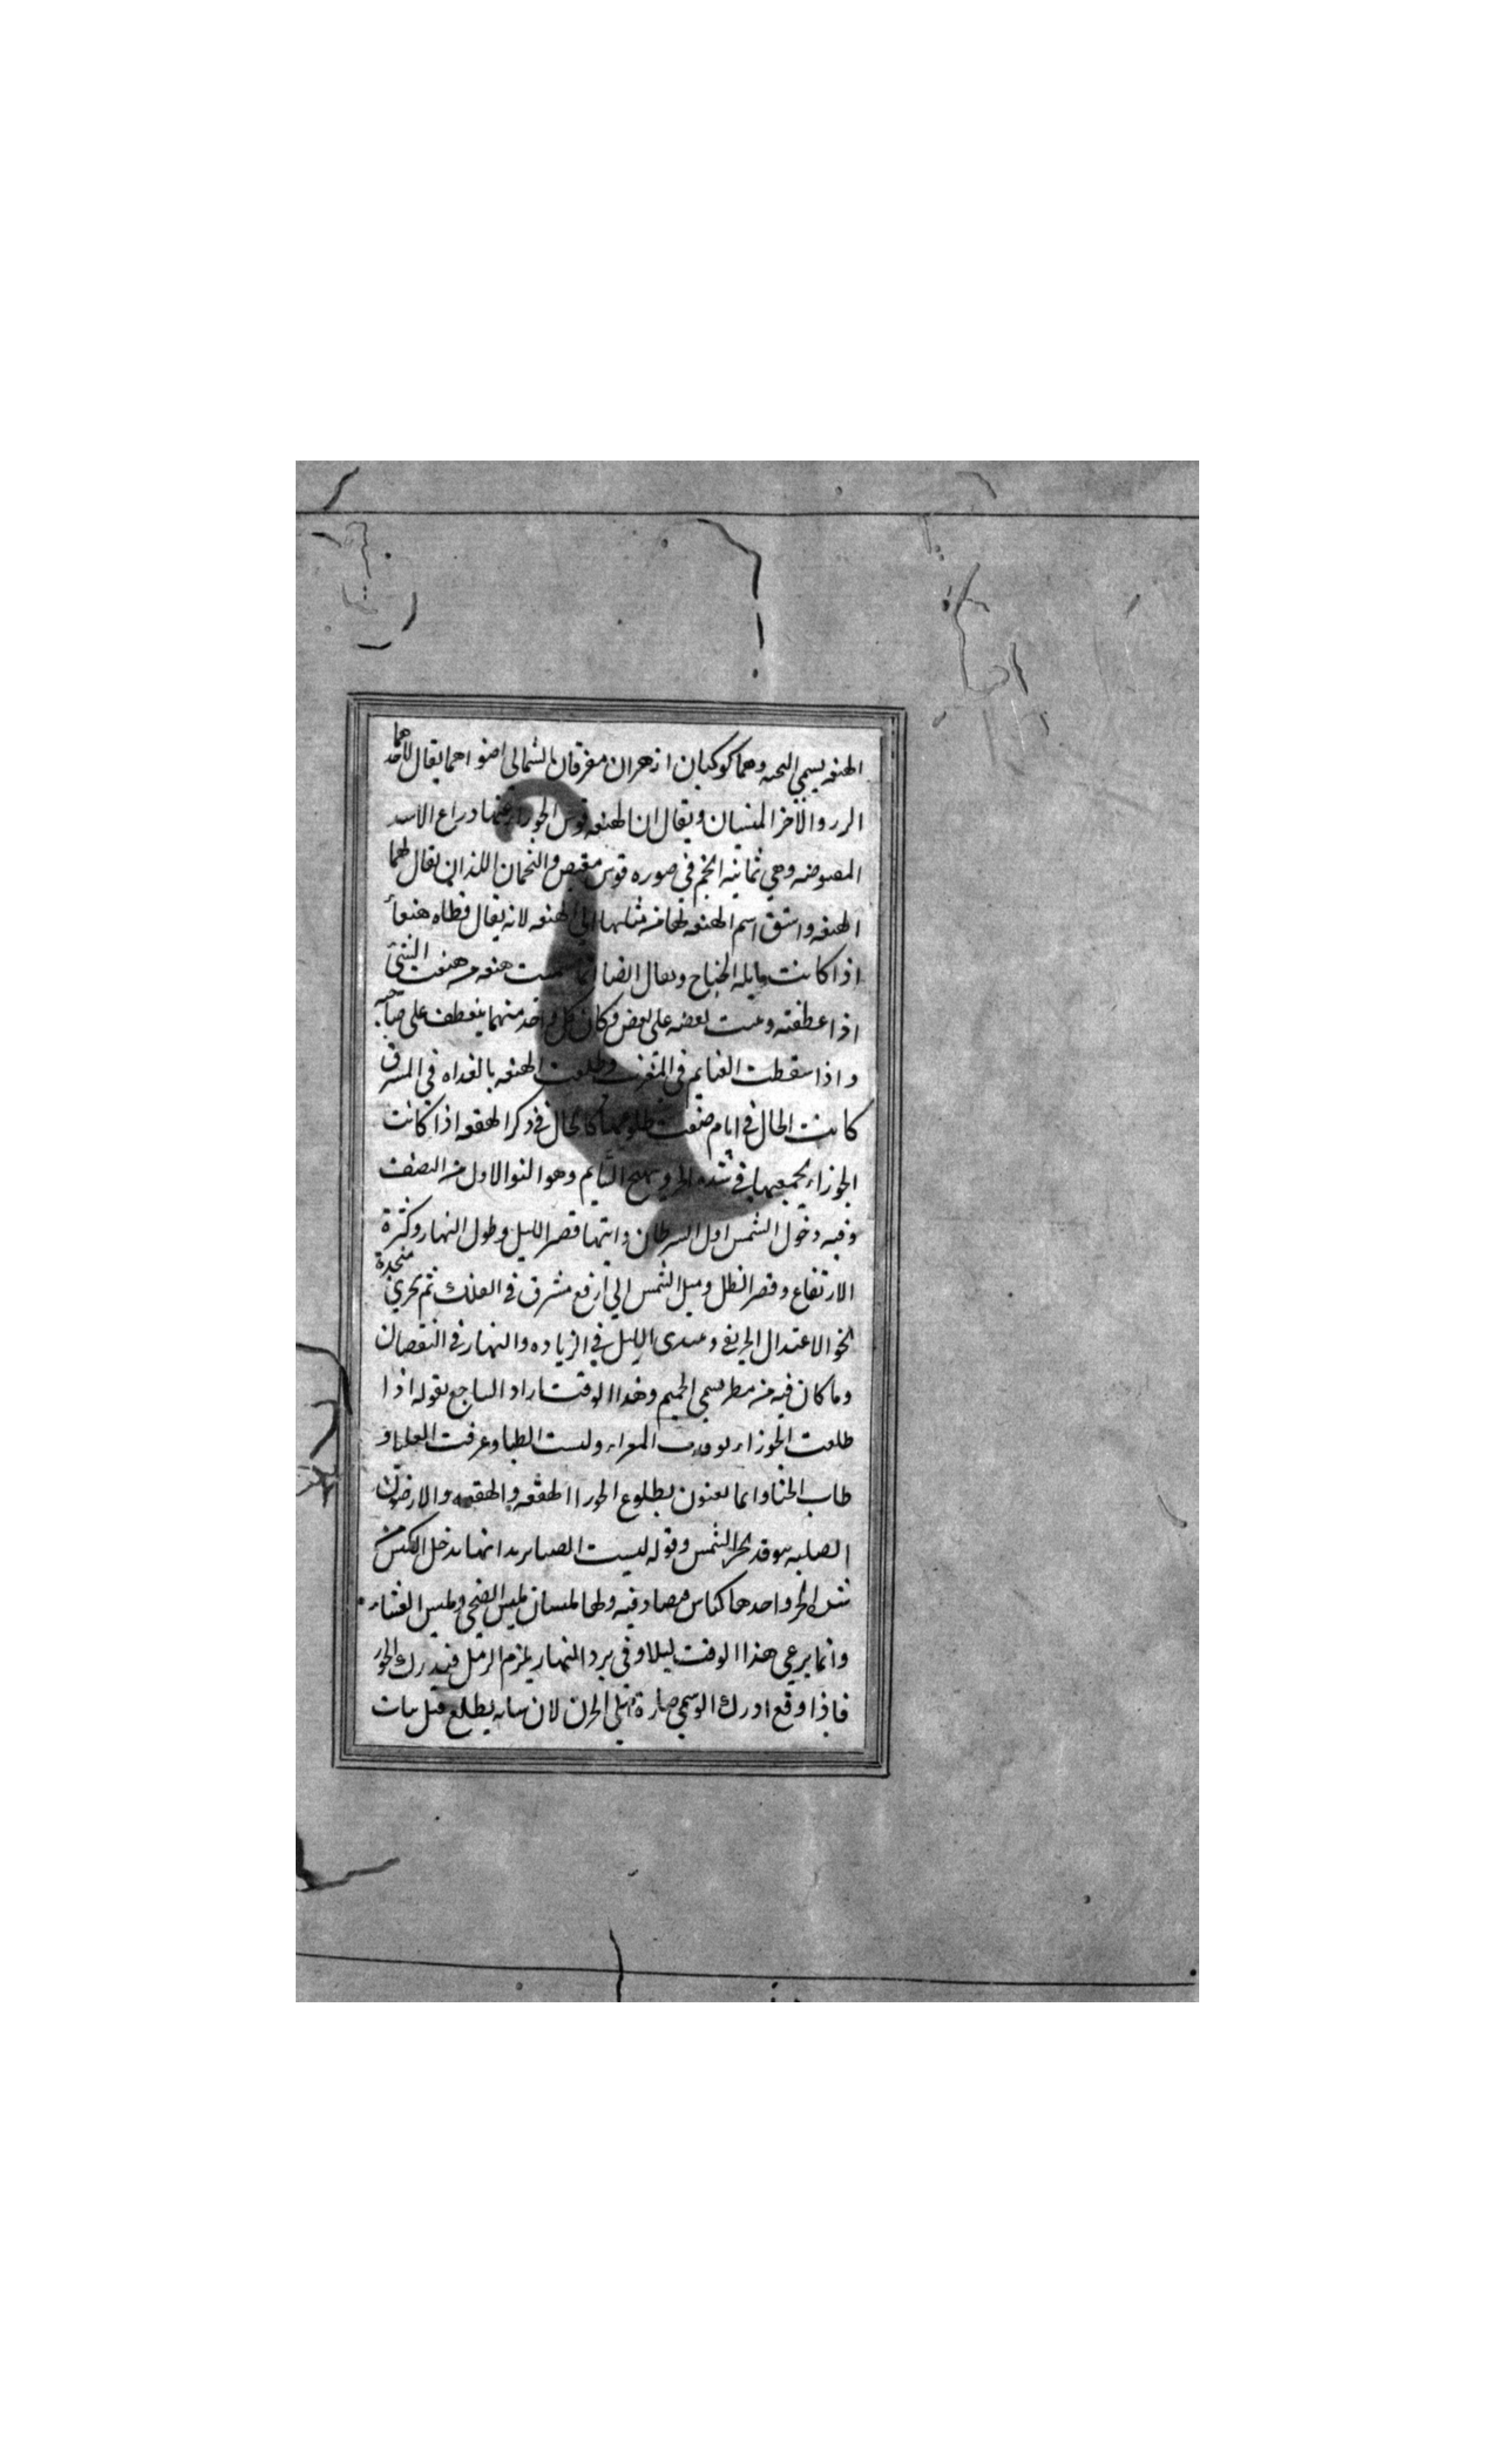 الهنعه يسمي التحيه وهما كوكبان ازهران مفرقان الشمالى اضواهما يقال لاحدهما
الزر والاخر الميسان ويقال ان الهنعه قوس الجوزا عنها دراع الاسد
المقبوضه وهي ثمانيه انجم في صوره قوس مقبض والنجمان اللذان يقال لهما
الهنعه واشتق اسم الهنعه لها من الهنعه لانه يقال قطاه هنعأ
اذا كانت مايله الجناح ويقال ايضا انما سميت هنعه من هنعت الشئ
اذا عطفته بعضه على بعض وكان كل واحد منهما ينعطف على صاحبه
واذا سقطت النعايم في المغرب وطلعت الهنعه بالغداه في المشرق
كانت الحال في ايام طلوعها كالحال في ذكر الهقعه اذا كانت
الجوزا يجمعهما في شده الحر وهيج السايم وهو النوا الاول من الصيف
وفيه دخول الشمس اول السرطان وانتها قصر الليل وطول النهار وكثرة
الارتفاع وقصر الظل وميل الشمس الي ارفع مشرق في الفلك ثم يجري منحدرة
نحو الاعتدال الخريفي ويبتدى الليل في الزياده والنهار في النقصان
وما كان فيه من مطر يسمي الحميم وهذا الوقت اراد الساجع بقوله اذا
طلعت الجوزا توقدت المعزا وكنست الظبا وعرقت العلبا و
طاب الخبا وانما يعنون بطلوع الجوزا الهقعه والهنعه والارضون
الصلبه يتوقد بحر الشمس وقوله كنست الظبا يريد انها تدخل الكنس من
شده الحر واحدها كناس ولها مكنسان مكنس الضحي ومكنس العشاء
وانما يرعي هذا الوقت ليلا وفي برد النهار يلزم الرمل
فاذا وقع ادرك الوسمي صارة الي الحزن لان نباته يطلع قبل نبات